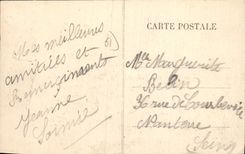 CARTE POSTALE
Mes meilleures
amitiées et
Remerciments
Jeanne
Mlle Marguerite
Belin
rue de Courbevoie
Nanterre
(Seine)